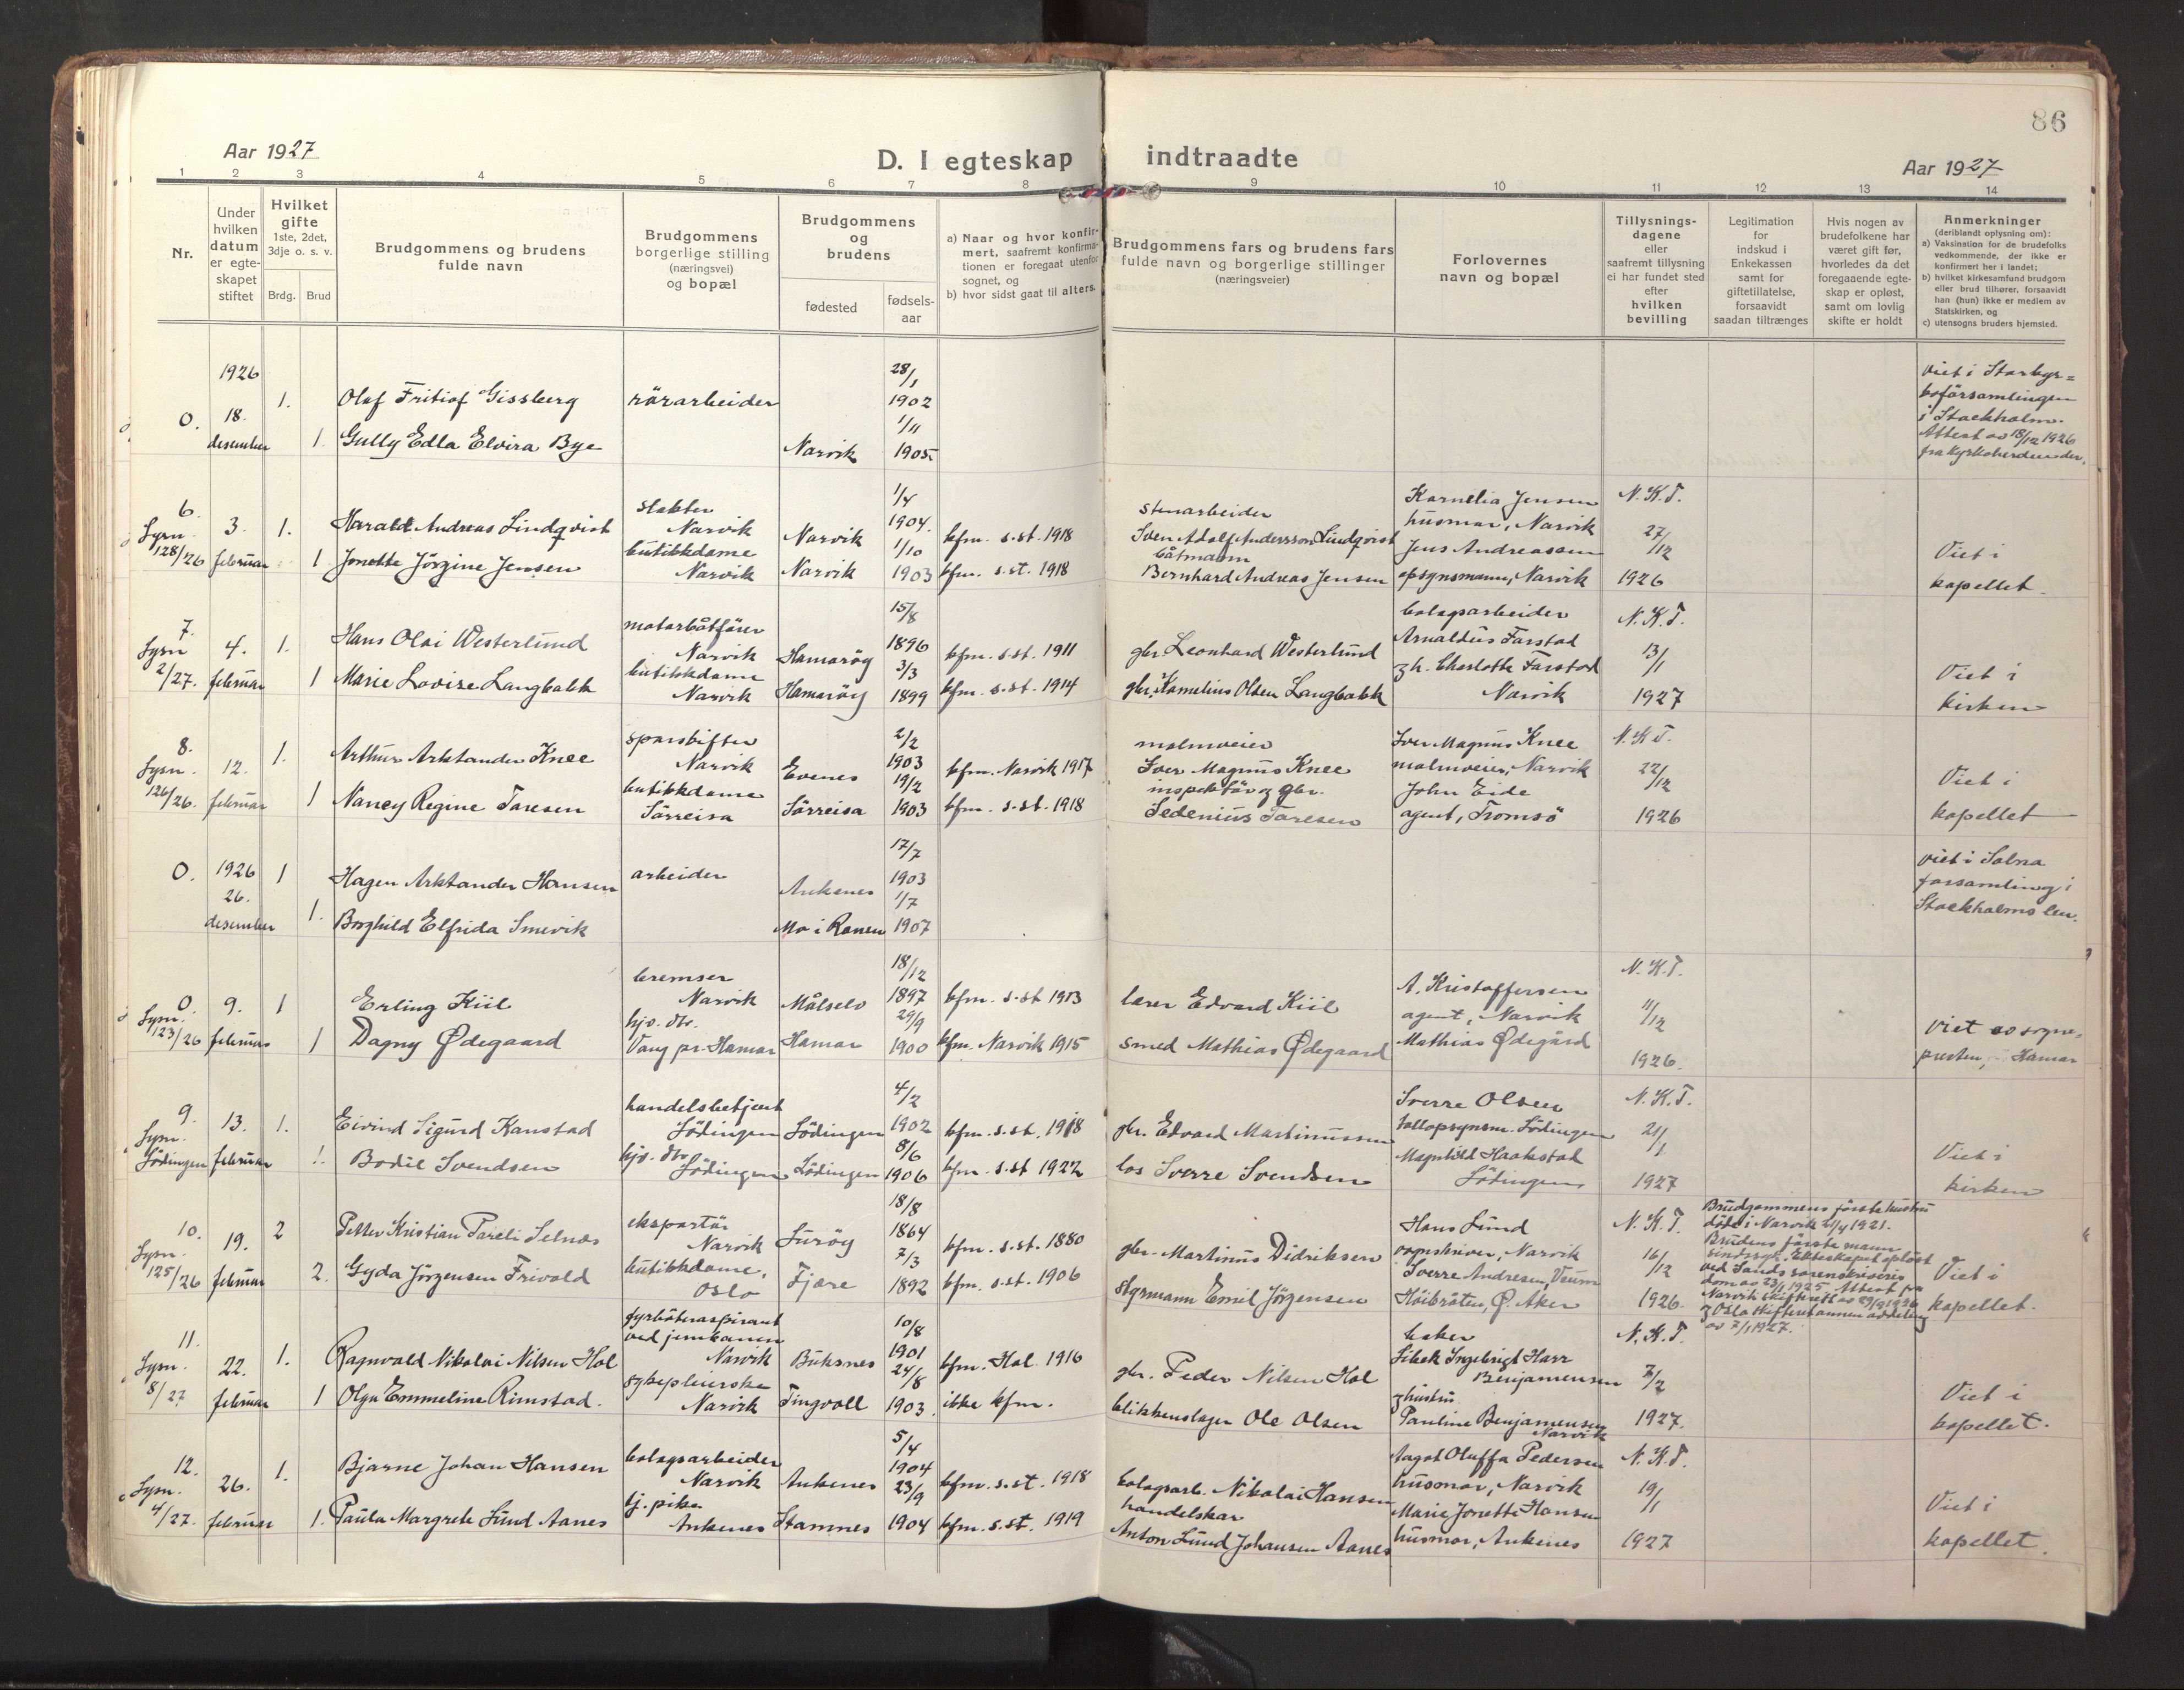 86
Aar 1927
D. I egteskap indtraadte
Aar 1927
1 2 3 4 5 6 7 8 9 10 11 12 13 14
Nr.
Under hvilken datum er egte-skapet stiftet
Hvilket gifte
1ste, 2det, 3dje o. s. v.
Brdg. Brud
Brudgommens og brudens fulde navn
Brudgommens borgerlige stilling (næringsvei) og bopæl
Brudgommens og brudens
fødested
fødsels-aar
a) Naar og hvor konfir-mert, saafremt konfirma-tionen er foregaat utenfor sognet, og
b) hvor sidst gaat til alters.
Brudgommens fars og brudens fars fulde navn og borgerlige stillinger (næringsveier)
Forlovernes navn og bopæl
Tillysnings-dagene eller saafremt tillysning ei har fundet sted efter hvilken bevilling
Legitimation for indskud i Enkekassen samt for giftetillatelse, forsaavidt saadan tiltrænges
Hvis nogen av brudefolkene har været gift før, hvorledes da det foregaaende egte-skap er opløst, samt om lovlig skifte er holdt
Anmerkninger
(deriblandt oplysning om):
a) Vaksination for de brudefolks vedkommende, der ikke er konfirmert her i landet;
b) hvilket kirkesamfund brudgom eller brud tilhører, forsaavidt han (hun) ikke er medlem av Statskirken, og
c) utensogns bruders hjemsted.
0. 1926 18. desember
1. Olaf Fritiof Gissberg rörarbeider 28/1 1902
1. Gully Edla Elvira Bye Narvik 1/11 1905
viet i
i Stockholm.
Attest av 18/12 1926
6. Lysn. 128/26 3. februar
1. Harald Andreas Lindqvist slakter Narvik Narvik 1/4 1904. kfm. s.st. 1918
1 Jonette Jörgine Jensen butikkdame Narvik Narvik 1/10 1903 kfm. s.st. 1918
stenarbeider
Sven Adolf Andersson Lindqvist
båtmann
Bernhard Andreas Jensen
Kornelia Jensen
husmor, Narvik
Jens Andreassen
opsynsmann, Narvik
N. K. T.
27/12
1926
Viet i
kapellet.
7. Lysn 2/27. 4. februar
1. Hans Olai Westerlund motorbåtfører Narvik Hamaröy 15/8 1896 kfm. s.st. 1911
1 Marie Lovise Langbakk butikkdame Narvik Hamaröy 3/3 1899 kfm. s.st. 1914
gbr Leonhard Westerlund
gbr. Kornelius Olsen Langbakk
bolagsarbeider
Arnaldus Farstad
og h. Charlotte Farstad
Narvik
N. K. T.
13/1
1927
Viet i
kirken
8. Lysn. 126/26. 12. februar
1. Arthur Arktander Knee sporskifter Narvik Evenes 2/2 1903 kfm. Narvik 1917
1 Nancy Regine Taresen butikkdame Sörreisa Sörreisa 19/2 1903 kfm. s.st. 1918
malmveier
Iver Magnus Knee
inspektör og gbr.
Sedenius Taresen
Iver Magnus Knee
malmveier, Narvik
John Eide
agent, Tromsö
N. K. T.
22/12
1926
Viet i
kapellet
0. 1926 26. desember
1 Hagen Arktander Hansen arbeider Ankenes 17/7 1903
1. Borghild Elfrida Smevik Mo i Ranen 1/7 1907
viet i Solna
forsamling i
Stockholms len.
0. Lysn. 123/26 9. februar
1 Erling Kiil bremser Narvik Målselv 18/12 1897 kfm. s.st 1913
1 Dagny Ødegaard hjv. dtr. Vang pr. Hamar Hamar 29/9 1900 kfm. Narvik 1915
lærer Edvard Kiil
smed Mathias Ødegaard
A. Kristoffersen
agent, Narvik
Mathias Ødegård
N. K. T.
11/12
1926.
viet av sogne-
presten, i Hamar
9. Lysn. Lödingen 13. februar
1. Eivind Sigurd Kanstad handelsbetjent Lödingen Lödingen 4/2 1902 kfm. s.st. 1918
1. Bodil Svendsen hjv. dtr Lödingen Lödingen 8/6 1906 kfm. s.st 1922
gbr. Edvard Martinussen
los Sverre Svendsen
Sverre Olsen
tollopsynsm. Lödingen
Magnhild Haakstad
Lödingen
N. K. T.
21/1
1927
Viet i
kirken
10. Lysn. 125/26 19. februar
2 Petter Kristian Pareli Selnæs ekspartör Narvik Luröy 18/8 1864 kfm. s.st. 1880
2. Gyda Jörgensen Frivold butikkdame, Oslo Fjære 7/3 1892 kfm. s.st. 1906
gbr. Martinus Didriksen
styrmann Emil Jörgensen
Hans Lund
vognskriver, Narvik
Sverre Andresen, Veum
Höibråten, Ø. Aker
N. K. T.
16/12
1926.
Brudgommens förste hustru
döde i Narvik 21/4 1921.
Brudens förste mann
sindssyk. Ekteskapet oplöst
ved Sands sorenskriveris
dom av 23/1 1925. Attest fra
Narvik skifterett av 29/9 1926
og Oslo skifterett annen avdeling
av 7/1 1927.
Viet i
kapellet.
11. Lysn. 8/27 22. februar
1. Ragnvald Nikolai Nilsen Hol fyrböteraspirant ved jernbanen Narvik Buksnes 10/8 1901 kfm. Hol 1916
1 Olga Emmeline Rimstad. sykepleierske Narvik Tingvoll 24/8 1903 ikke kfm.
gbr. Peder Nilsen Hol
blikkenslager Ole Olsen
baker
Ingebrigt Harr
Benjaminsen
og hustru
Pauline Benjaminsen
Narvik
N. K. T.
7/2
1927.
Viet i
kapellet.
12. Lysn. 4/27. 26. februar
1. Bjarne Johan Hansen bolagsarbeider Narvik Ankenes 5/4 1904 kfm. s.st. 1918
1. Paula Margrete Lund Aanes tj. pike Ankenes Stamnes 23/9 1904 kfm. s.st. 1919
bolagsarb. Nikolai Hansen
handelskar
Anton Lund Johansen Aanes
Aagot Oluffa Pedersen
husmor, Narvik
Marie Jonette Hansen
husmor, Ankenes
N. K. T.
19/1
1927
Viet i
kapellet.